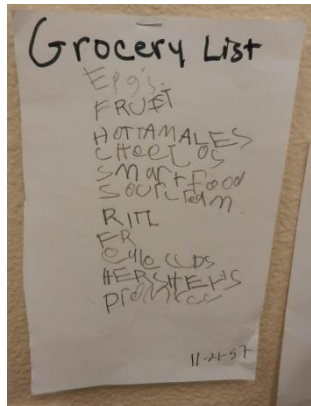 Grocery List
Epgs.
FRUIT
HOTTAMALES
cHeetos
smartfood
sourcream
RITL
ER
HERSHEHS
11-21-57